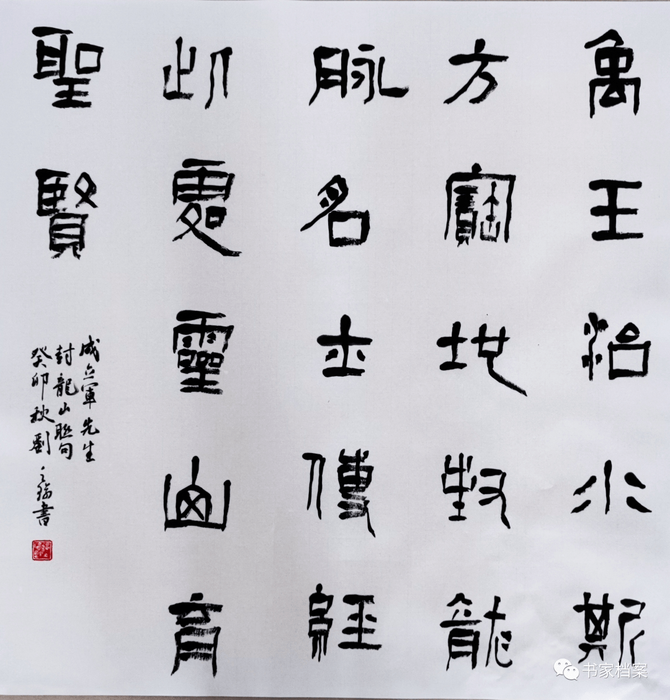 禹王治水斯
方寶地牧龍
脉名士傳經
此處靈山育
聖賢
成立軍先生
封龍山聯句
癸卯秋劉書
书家档案